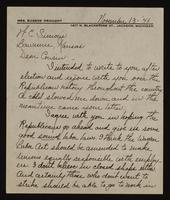 MRS. EUGENE DRAUGHT
1417 N. BLACKSTONE ST. JACKSON, MICHIGAN
November 13 - '46
Lawrence, Kansas
Dear Cousin
I intended to write to you after
election and rejoice with you over the
Republican victory throughout the country.
A cold slowed me down and in the
meantime came your letter.
I agree with you in hoping the
Republicans go ahead and give us some
good sound labor laws. I think the Wagner
Labor Act should be amended to make
unions equally responsible with employ-
ers. I don't believe in closed shops either
And certainly those who don't want to
strike should be able to go to work in